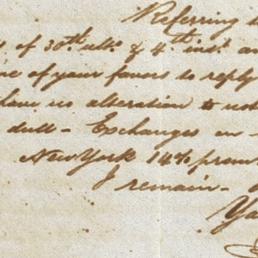 Referring
of 30th ulto. & 4th inst. an
of your favors to reply
have no alteration to not
dull - Exchanges on
New York 14% prem
I remain -